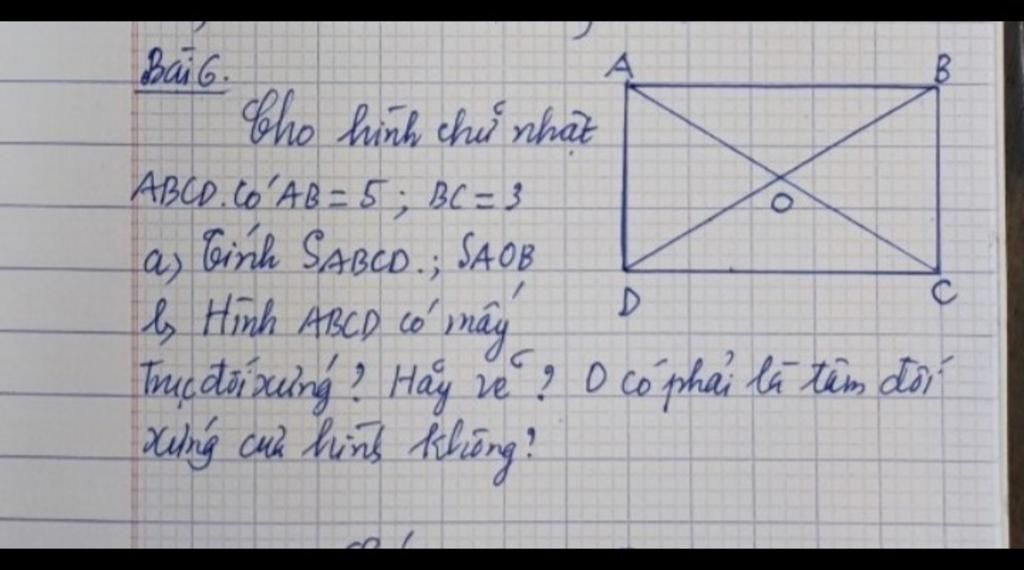 Bài 6.
Cho hình chữ nhật
ABCD. Có AB = 5 ; BC = 3
a, Tính SABCD. ; SAOB
b, Hình ABCD có mấy
trục đối xứng ? Hãy vẽ ? O có phải là tâm đối
xứng của hình không ?
A
B
O
D
C